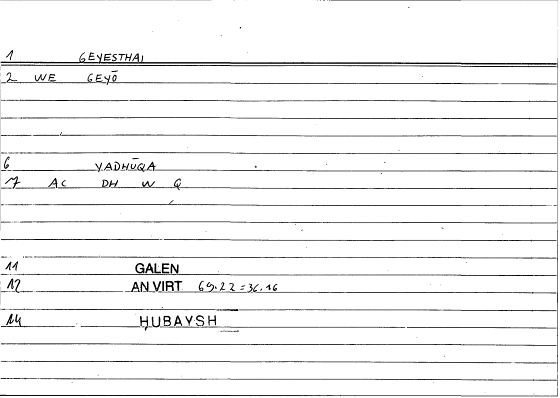 1 GEYESTHAI
2 WE GEYŌ
6 YADHŪQA
7 AC DH W Q
11 GALEN
12 AN VIRT 69.22=36.16
14 ḤUBAYSH